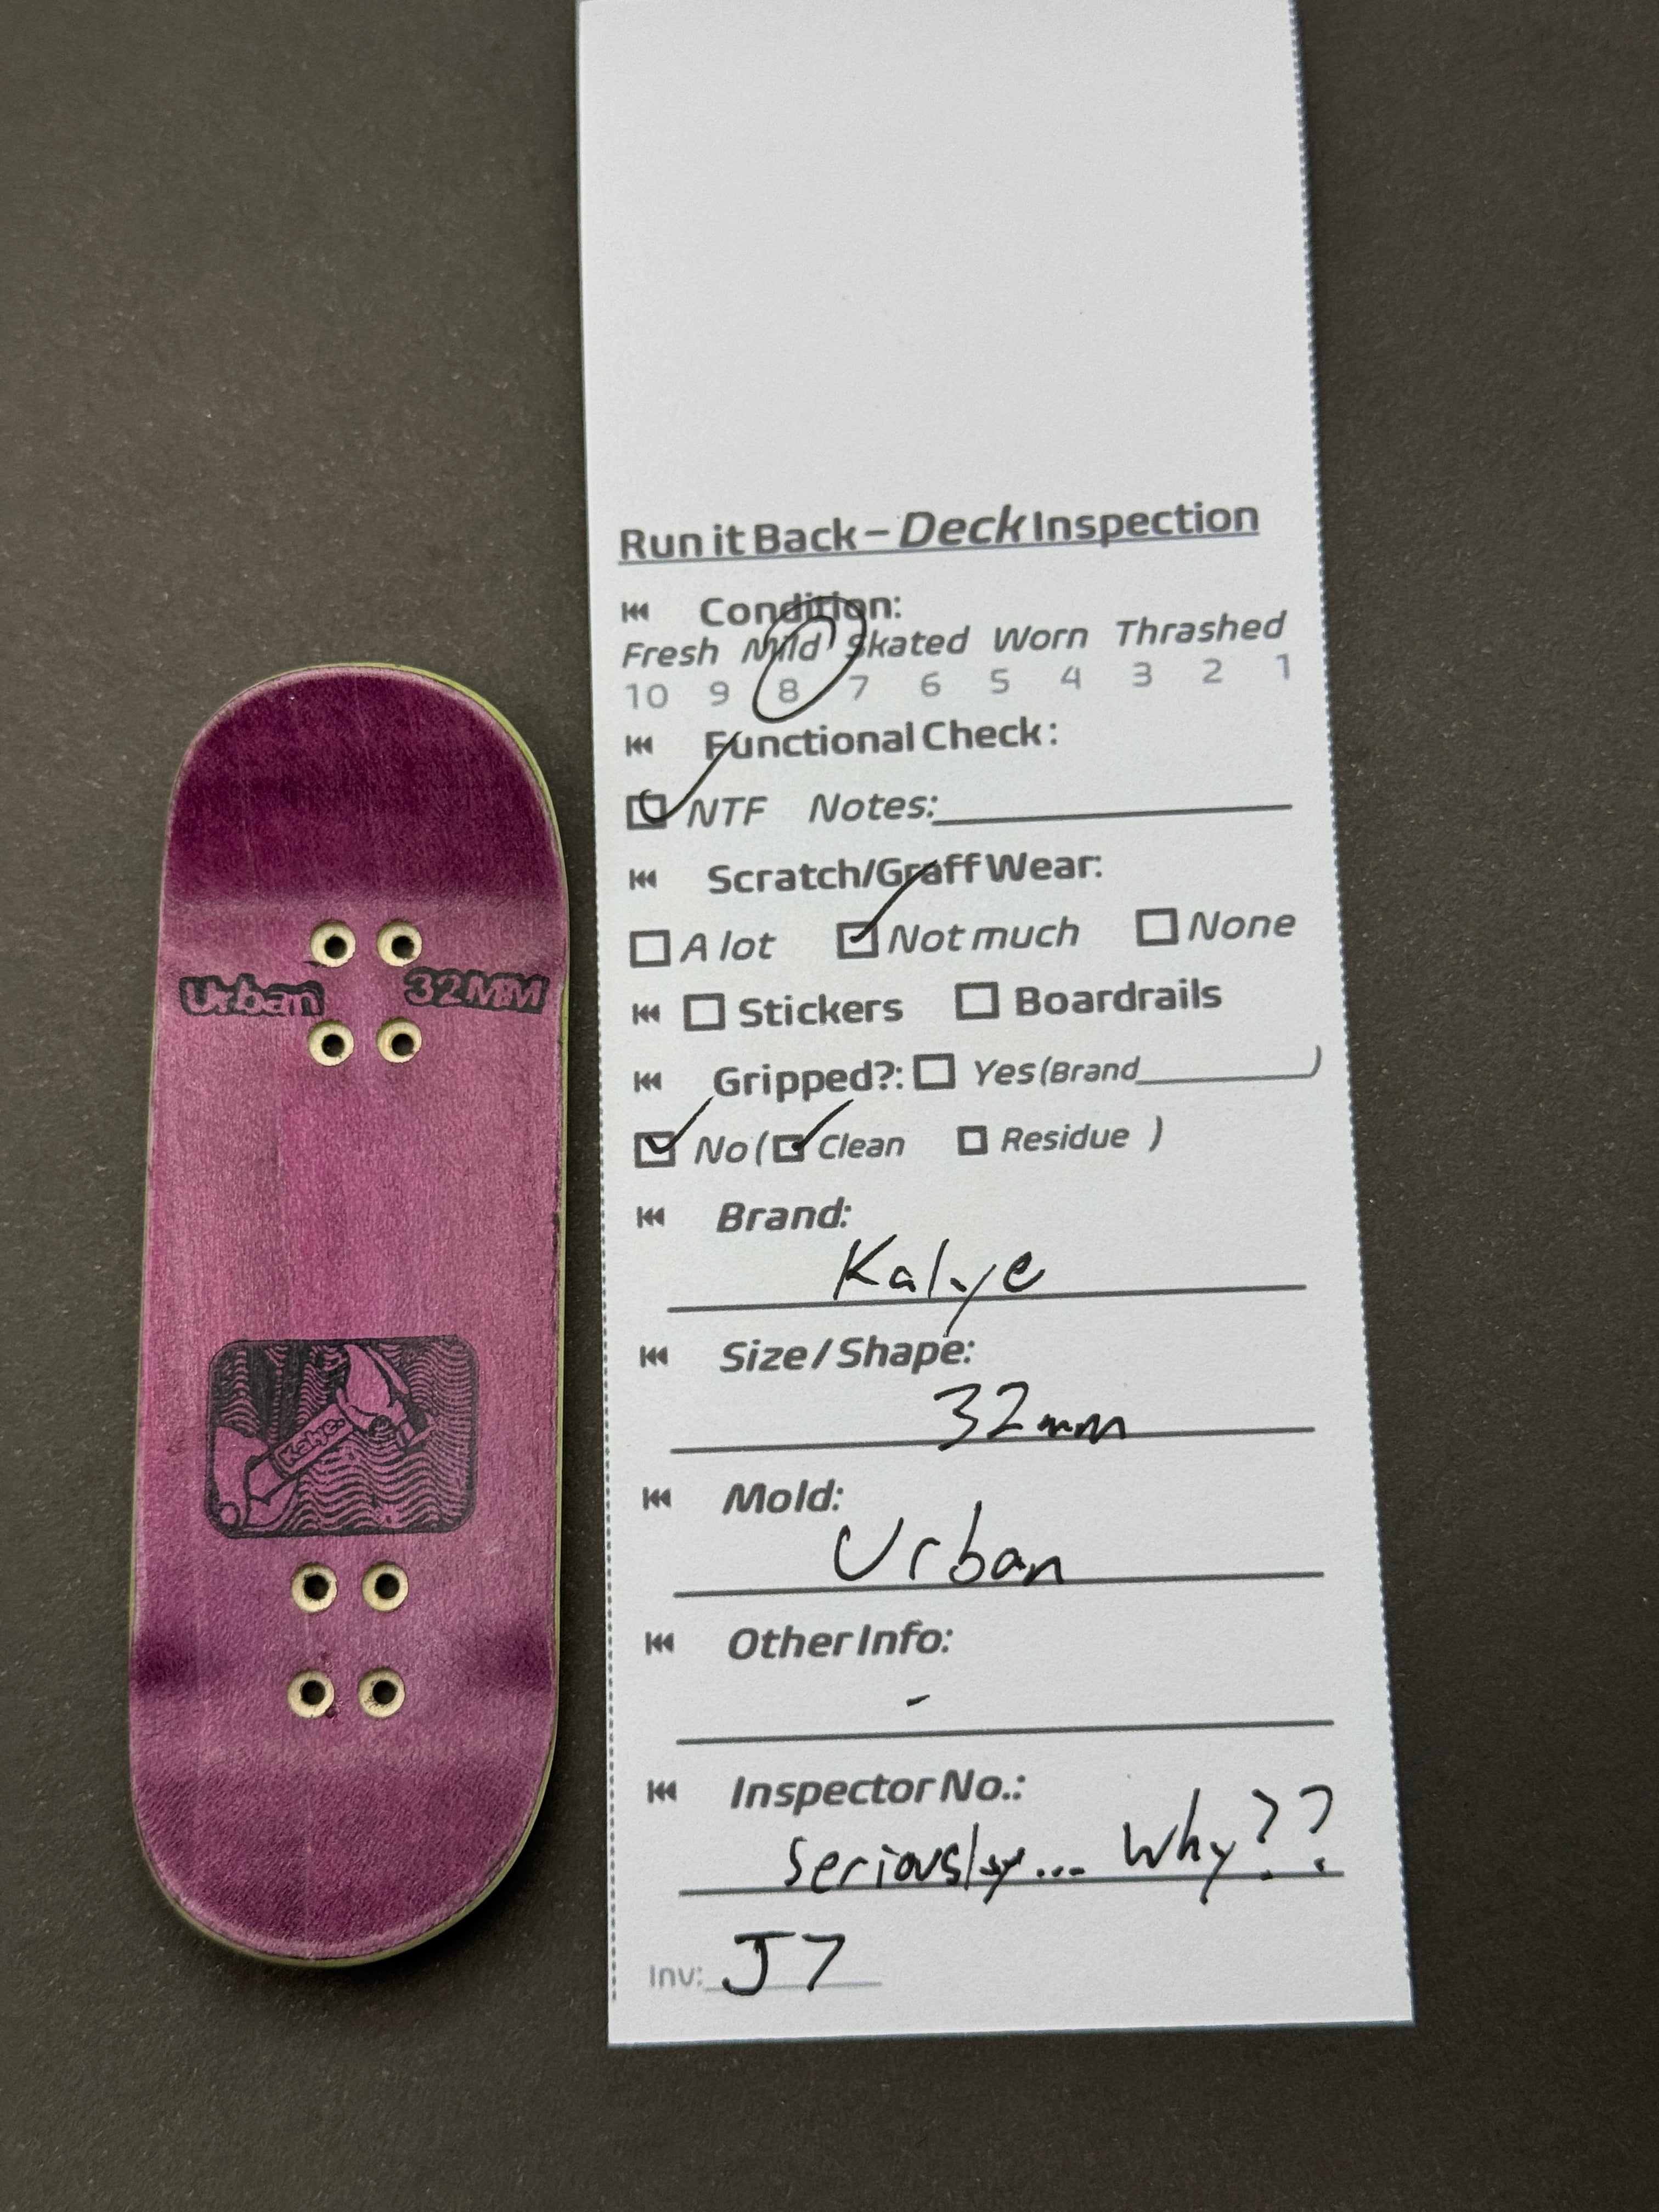 Run it Back – Deck Inspection
Condition:
Fresh Mild Skated Worn Thrashed
10 9 8 7 6 5 4 3 2 1
Functional Check:
NTF Notes:
Scratch/Graff Wear:
A lot Not much None
Stickers Boardrails
Gripped?: Yes (Brand )
No ( Clean Residue )
Brand:
Kalye
Size / Shape:
32mm
Mold:
Urban
Other Info:
-
Inspector No.:
Seriously... Why??
Inv: J7
Urban 32MM
Kalye